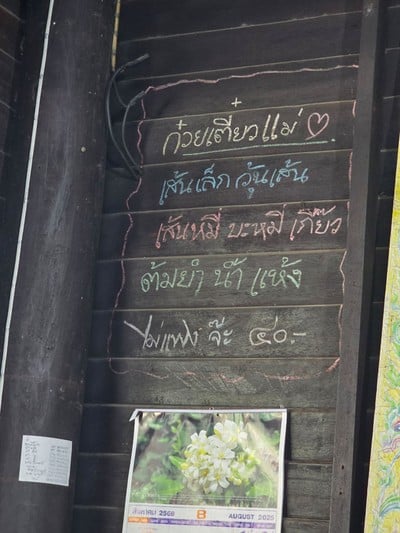 ก๋วยเตี๋ยวแม่ ♡
เส้นเล็ก วุ้นเส้น
เส้นหมี่ บะหมี่ เกี๊ยว
ต้มยำ น้ำ แห้ง
ไม่แพง จ๊ะ ๔๐.-
สิงหาคม 2568 8 AUGUST 2025